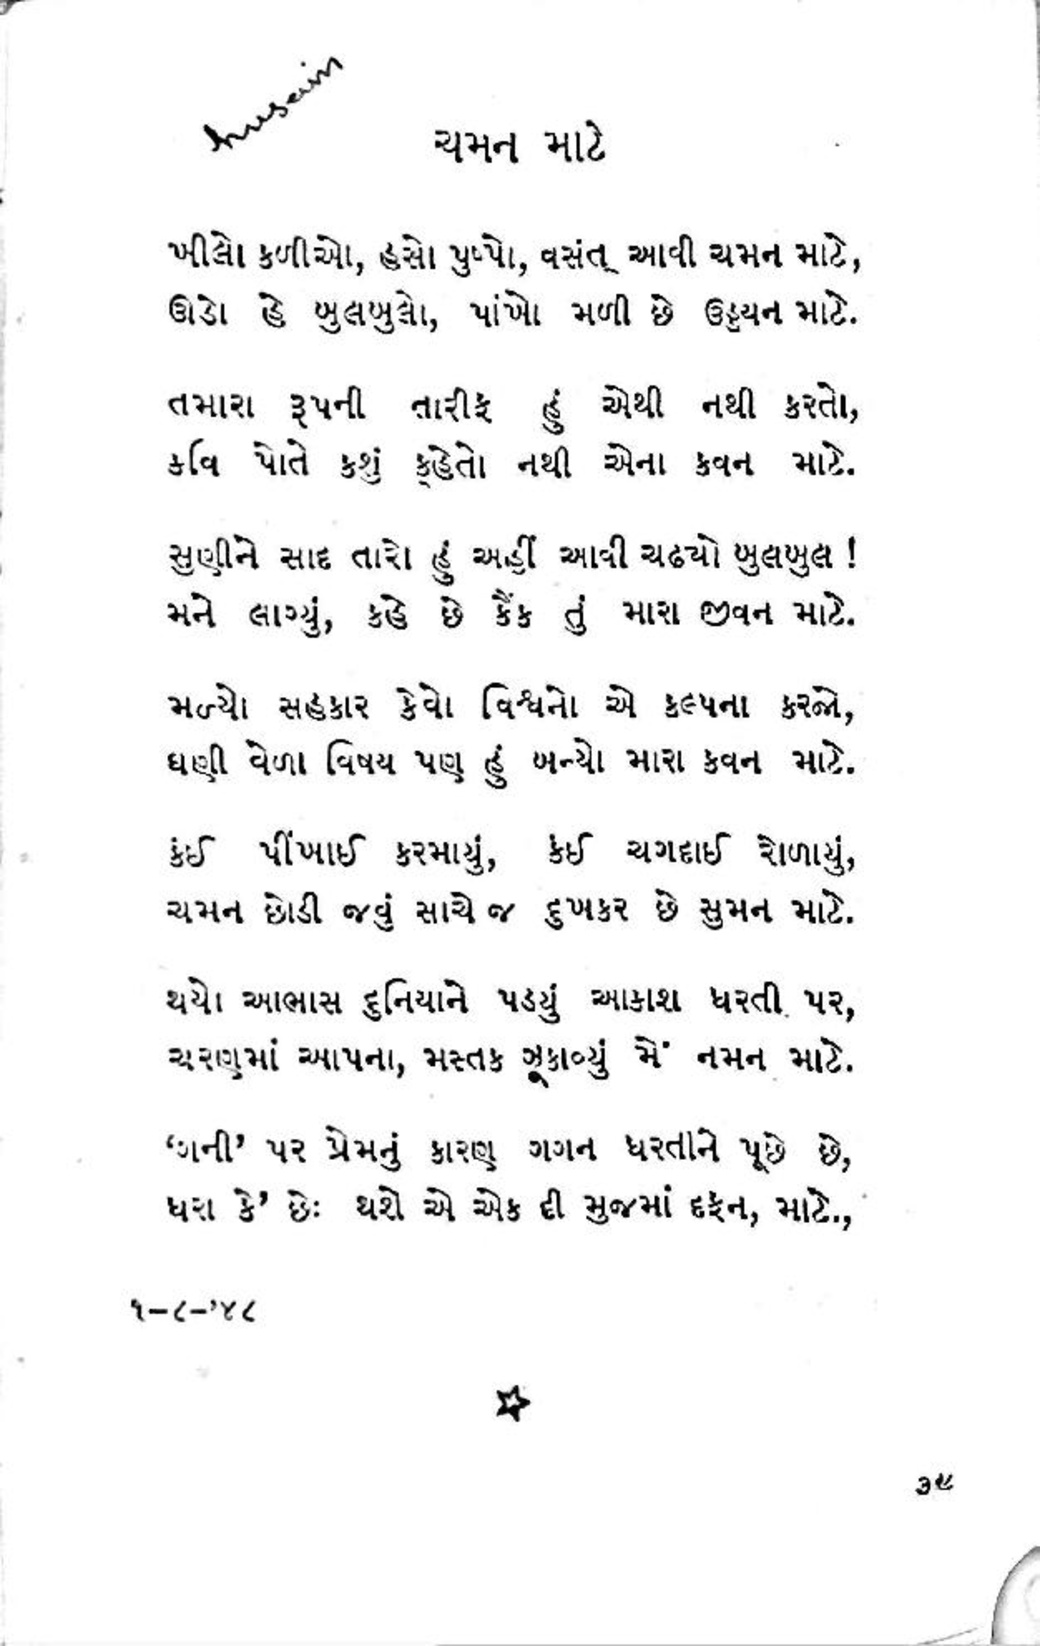 husain
ચમન માટે
ખીલો કળીઓ, હસો પુષ્પો, વસંત્ આવી ચમન માટે,
ઊડો હે બુલબુલો, પાંખો મળી છે ઉડ્ડયન માટે.
તમારા રૂપની તારીફ હું એથી નથી કરતો,
કવિ પોતે કશું ક્હેતો નથી એના કવન માટે.
સુણીને સાદ તારો હું અહીં આવી ચઢયો બુલબુલ !
મને લાગ્યું, કહે છે કૈંક તું મારા જીવન માટે.
મળ્યો સહકાર કેવો વિશ્વનો એ કલ્પના કરજો,
ઘણી વેળા વિષય પણ હું બન્યો મારા કવન માટે.
કંઈ પીંખાઈ કરમાયું, કંઈ ચગદાઈ રોળાયું,
ચમન છોડી જવું સાચે જ દુખકર છે સુમન માટે.
થયો આભાસ દુનિયાને પડયું આકાશ ધરતી પર,
ચરણમાં આપના, મસ્તક ઝૂકાવ્યું મેં નમન માટે.
‘ગની’ પર પ્રેમનું કારણ ગગન ધરતીને પૂછે છે,
ધરા કે’ છેઃ થશે એ એક દી મુજમાં દફન, માટે.,
૧-૮-’૪૮
૩૯